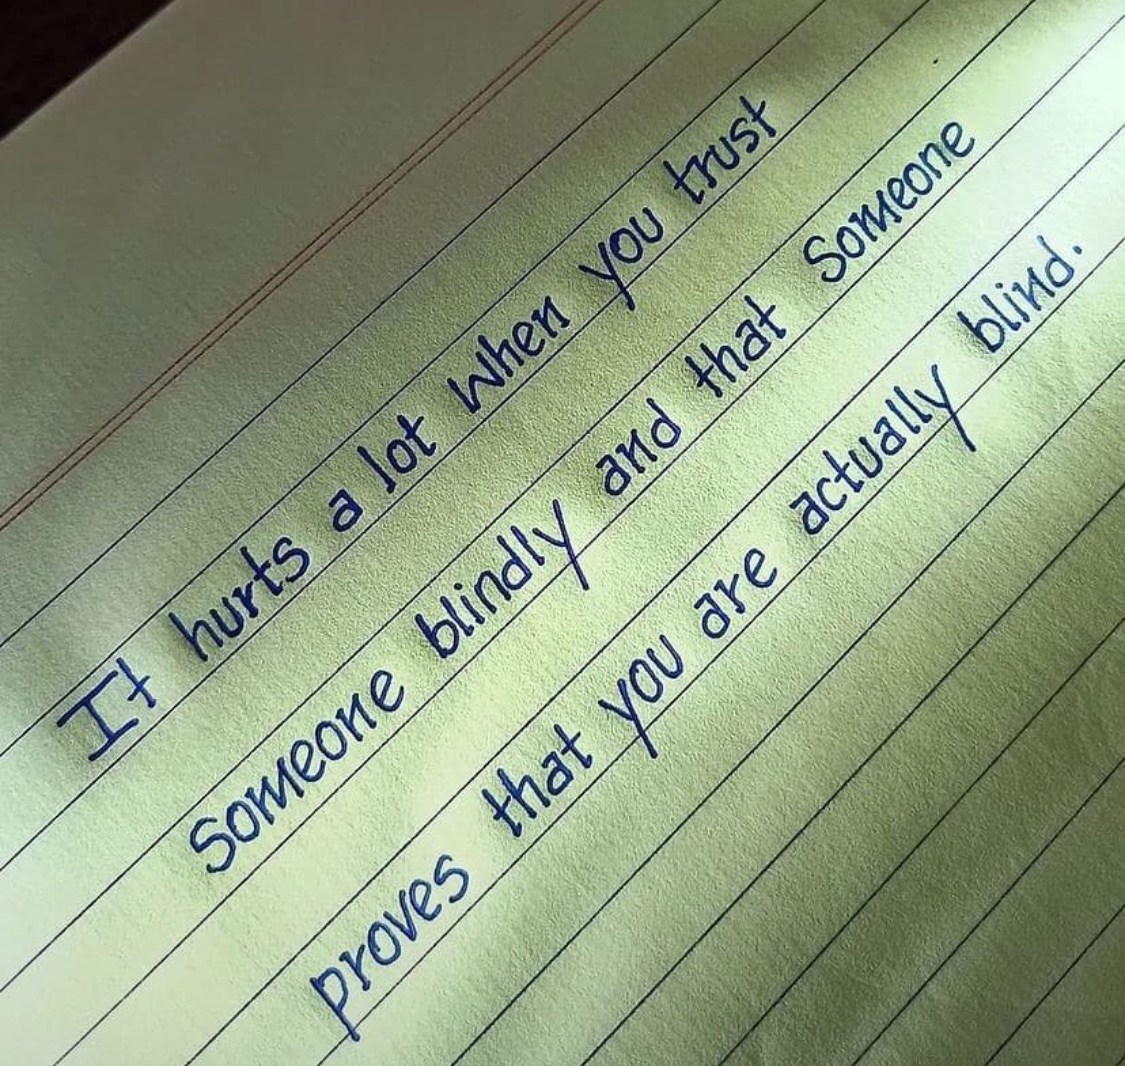 It hurts a lot when you trust
someone blindly and that someone
proves that you are actually blind.